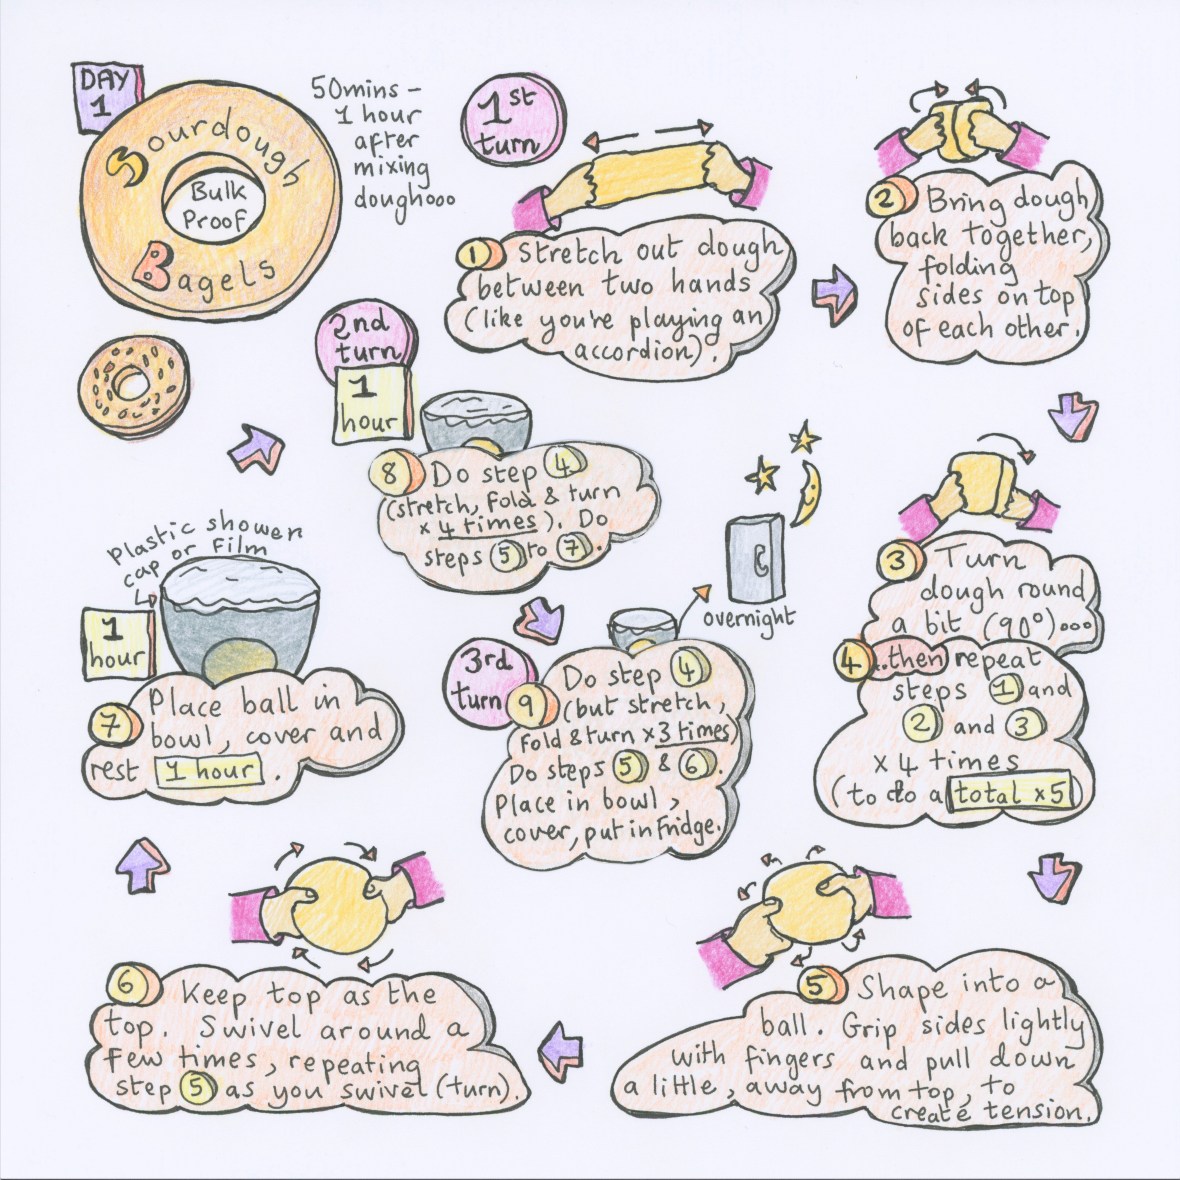 DAY
1
Sourdough
Bulk
Proof
Bagels
50mins -
1 hour
after
mixing
doughooo
1st
turn
1 Stretch out dough
between two hands
(like you're playing an
accordion).
2 Bring dough
back together,
folding
sides on top
of each other.
3 Turn
dough round
a bit (90°)...
4 ..then repeat
steps 1 and
2 and 3
x 4 times
(to do a total x5)
5 Shape into a
ball. Grip sides lightly
with fingers and pull down
a little, away from top, to
create tension.
6 Keep top as the
top. Swivel around a
few times, repeating
step 5 as you swivel (turn).
Plastic shower
cap or film
1
hour
7 Place ball in
bowl, cover and
rest 1 hour.
2nd
turn
1
hour
8 Do step 4
(stretch, fold & turn
x 4 times). Do
steps 5 to 7.
3rd
turn
9 Do step 4
(but stretch,
fold & turn x 3 times)
Do steps 5 & 6.
Place in bowl,
cover, put in fridge.
overnight